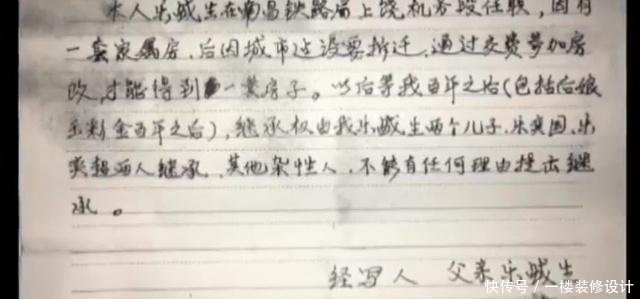 本人乐诚生在南昌铁路局上饶机务段任职，因有
一套家属房，后因城市建设要拆迁，通过交费参加房
改，才能得到一套房子。以后等我百年之后(包括后娘
百年之后)，继承权由我乐诚生两个儿子，乐
两人继承，其他杂性人，不能有任何理由提出继
承。
经写人 父亲乐诚生
快传号／一楼装修设计